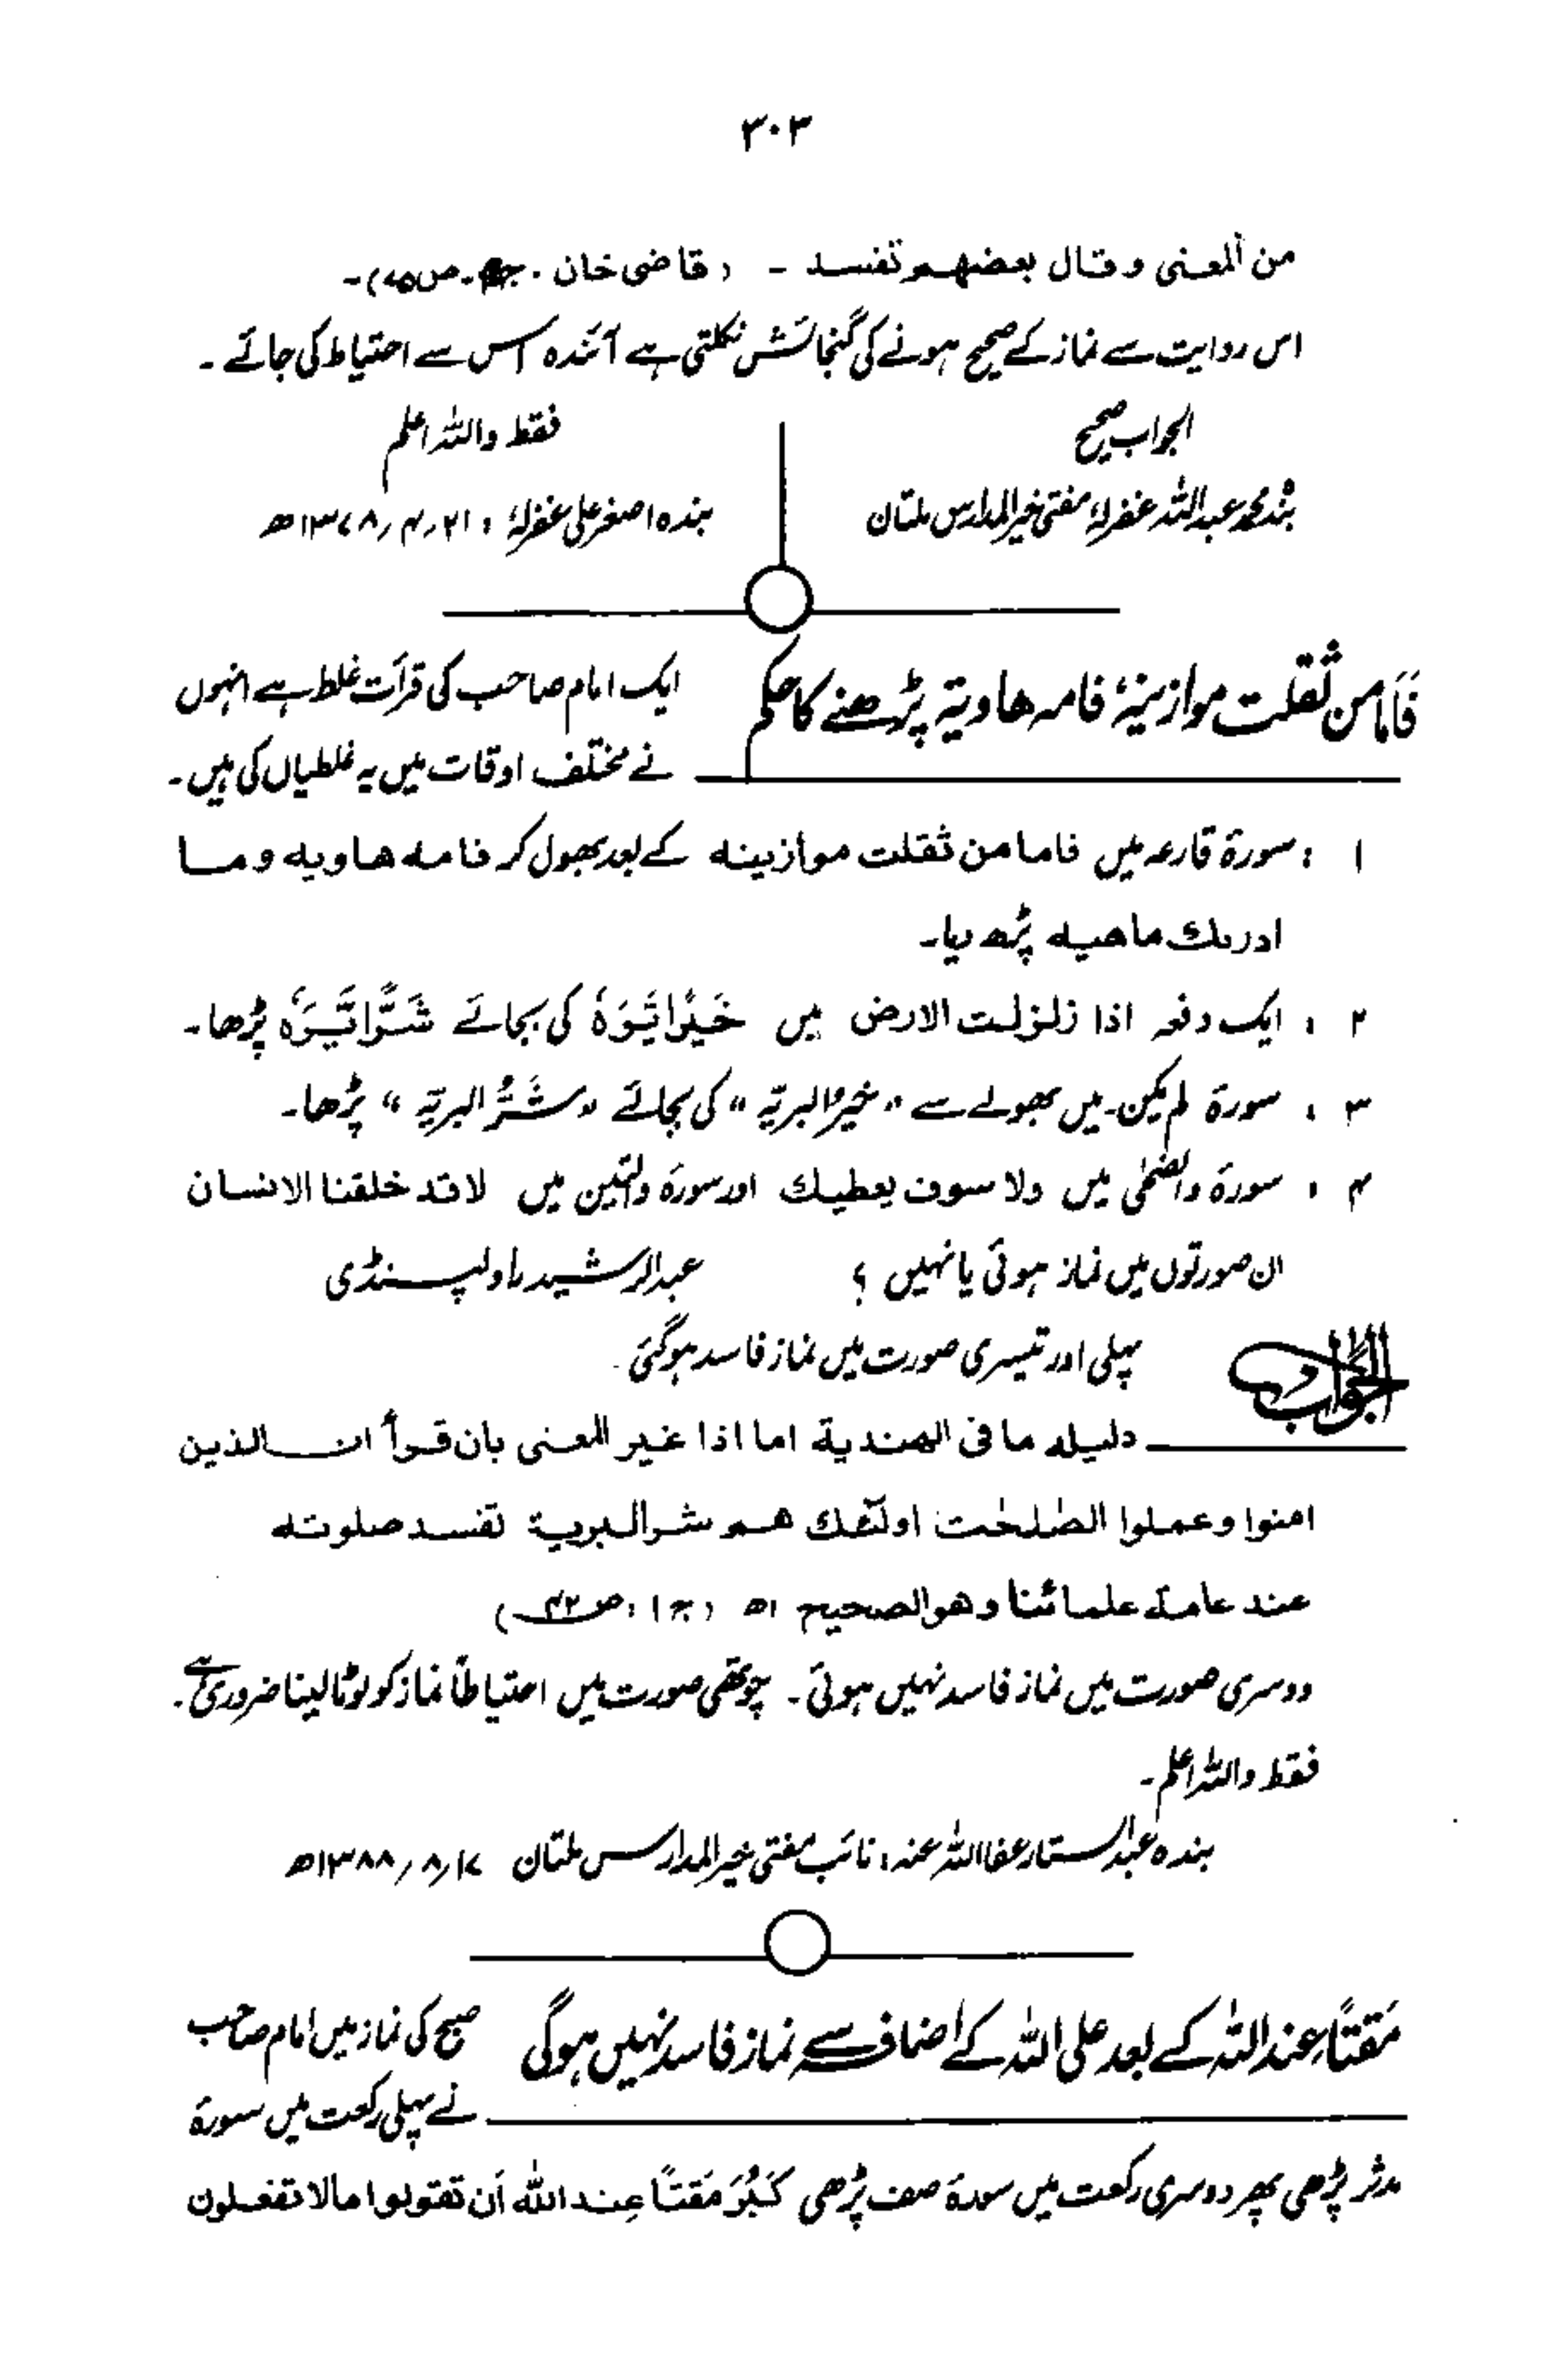 ۳۰۳
من المعنی و قال بعضهم تفسد ۔ (قاضی خان۔
اس روایت سے نماز کے صحیح ہونے کی گنجائش نکلتی ہے آئندہ اس سے احتیاط کی جائے ۔
الجواب صحیح
بندہ محمد عبداللہ غفرلہٗ مفتی خیر المدارس ملتان
فقط واللہ اعلم
بندہ اصغر علی غفرلہٗ ، ۲۱ / ۴ / ۱۳۷۸ھ
فَاَمَّا من ثقلت موازینہٗ فامہ ھاویۃ پڑھنے کا حکم
ایک امام صاحب کی قرآت غلط ہے انہوں
نے مختلف اوقات میں یہ غلطیاں کی ہیں۔
۱ : سورۃ قارعہ میں فاما من ثقلت موازینہ کے بعد بھول کر فامہ ھاویہ وما
ادرىك ماھیہ پڑھ دیا۔
۲ : ایک دفعہ اذا زلزلت الارض میں خَیْرًا یَّرَہٗ کی بجائے شَرًّا یَّرَہٗ پڑھا۔
۳ : سورۃ لم یکن میں بھولے سے "خیرُ البریّہ" کی بجائے "شَرُّ البریّہ" پڑھا۔
۴ : سورۃ والضحٰی میں ولا سوف یعطیك اور سورۃ والتین میں لاقد خلقنا الانسان
ان صورتوں میں نماز ہوئی یا نہیں ؟ عبدالرشید راولپنڈی
الجواب
پہلی اور تیسری صورت میں نماز فاسد ہوگئی۔
دلیلہ ما فی الھندیۃ اما اذا غیر المعنی بان قرأ ان الذین
امنوا وعملوا الصٰلحٰت اولٓئك ھم شر البریۃ تفسد صلوتہ
عند عامۃ علمائنا وھو الصحیح اھ (ج۱ ، ص۴۲)
دوسری صورت میں نماز فاسد نہیں ہوئی۔ چوتھی صورت میں احتیاطاً نماز کو لوٹا لینا ضروری ہے۔
فقط واللہ اعلم۔
بندہ عبدالستار عفا اللہ عنہ ، نائب مفتی خیر المدارس ملتان ۱۷ / ۸ / ۱۳۸۸ھ
مَقتًا عِند اللہ کے بعد علی اللہ کے اضافے سے نماز فاسد نہیں ہوگی
صبح کی نماز میں امام صاحب
نے پہلی رکعت میں سورۃ
مدثر پڑھی پھر دوسری رکعت میں سورۃ صف پڑھی کَبُرَ مَقتًا عِند اللہ اَن تقولوا مالا تفعلون